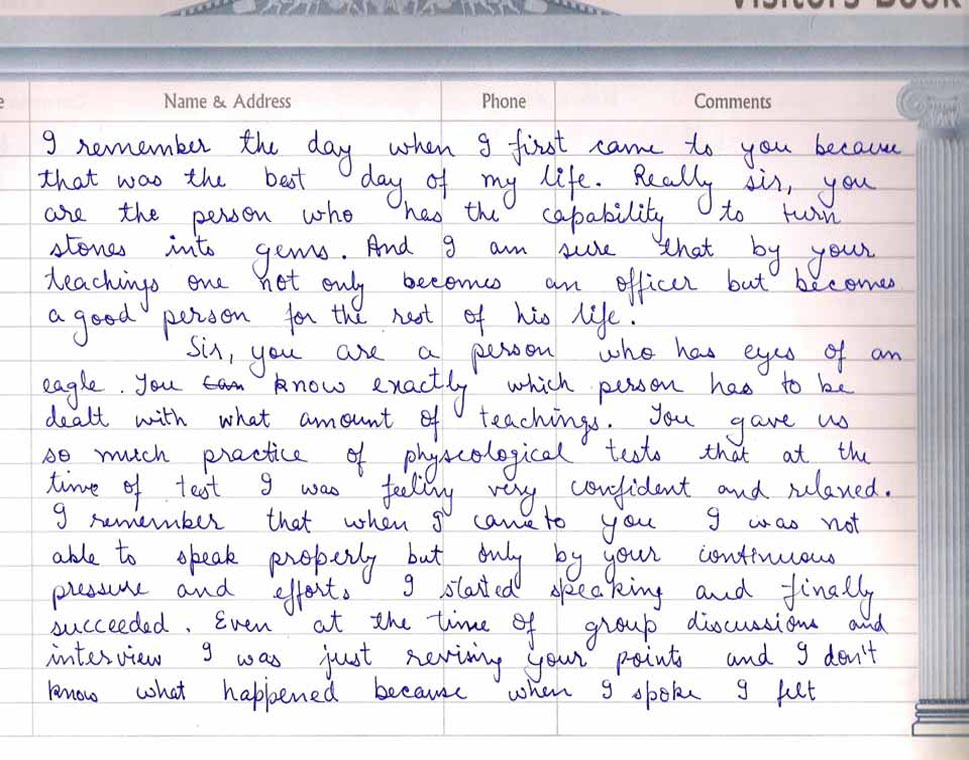 Visitors Book
e Name & Address Phone Comments
I remember the day when I first came to you because
that was the best day of my life. Really sir, you
are the person who has the capability to turn
stones into gems. And I am sure that by your
teachings one not only becomes an officer but becomes
a good person for the rest of his life.
Sir, you are a person who has eyes of an
eagle. You can know exactly which person has to be
dealt with what amount of teachings. You gave us
so much practice of physcological tests that at the
time of test I was feeling very confident and relaxed.
I remember that when I came to you I was not
able to speak properly but only by your continuous
pressure and efforts I started speaking and finally
succeeded. Even at the time of group discussions and
interview I was just revising your points and I don't
know what happened because when I spoke I felt